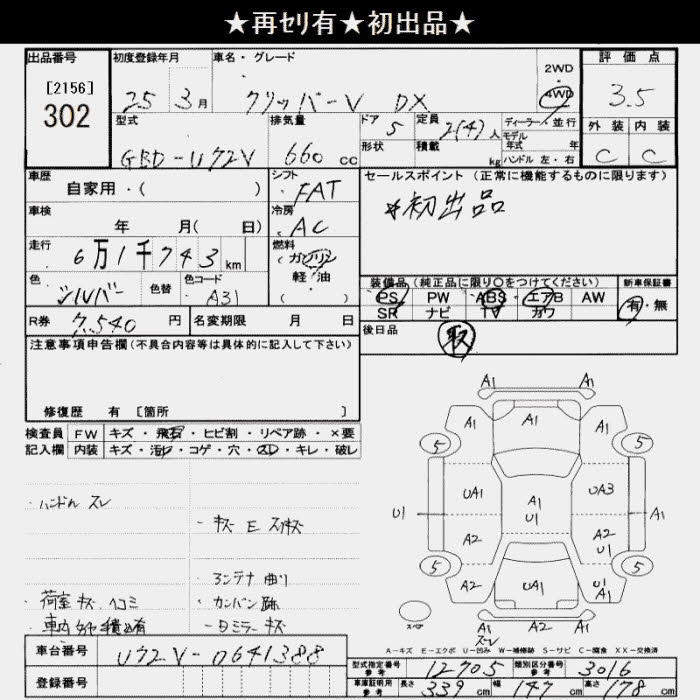 ★再セリ有★初出品★
出品番号 初度登録年月 車名・グレード 2WD・4WD 評価点
[2156]
302
25年3月 クリッパーV DX 3.5
型式 排気量 ドア 定員 ディーラー・並行
GBD-U72V 660cc 5 2(4)人 モデル年式 年
形状 積載 kg ハンドル 左・右
外装 内装
C C
車歴 シフト セールスポイント(正常に機能するものに限ります)
自家用・( ) FAT *初出品
車検 年 月( 日) 冷房 AC
走行 6万1千743km 燃料 ガソリン
軽・油
色 シルバー 色替 色コード A31
装備品(純品に限り○をつけてください) 新車保証書
PS PW ABS エアB AW 有・無
SR ナビ TV カワ
R券 7,540円 名変期限 月 日 後日品 取
注意事項申告欄(不具合内容等は具体的に記入して下さい)
修復歴 有 [箇所 ]
検査員 FW キズ・飛石・ヒビ割・リペア跡・×要
記入欄 内装 キズ・汚レ・コゲ・穴・スレ・キレ・破レ
・ハンドル スレ
・キズ E スリキズ
・アンテナ曲り
・荷室キズ ヘコミ ・カンバン跡
A1 A1
A1 A1 A1
5 5
UA1 A1 UA3
U1 U1 A1
A2 A2
U1
5 5
A2 UA1 U1
A1
A2 A2
スレ
スペア
A-キズ E-エクボ U-凹み W-補修跡 S-サビ C-腐食 XX-交換済
車台番号 U72V-0641388
登録番号
型式指定番号 参考 12705 類別区分番号 参考 3016
車庫証明用 参考 長さ 339cm 幅 147cm 高さ 178cm